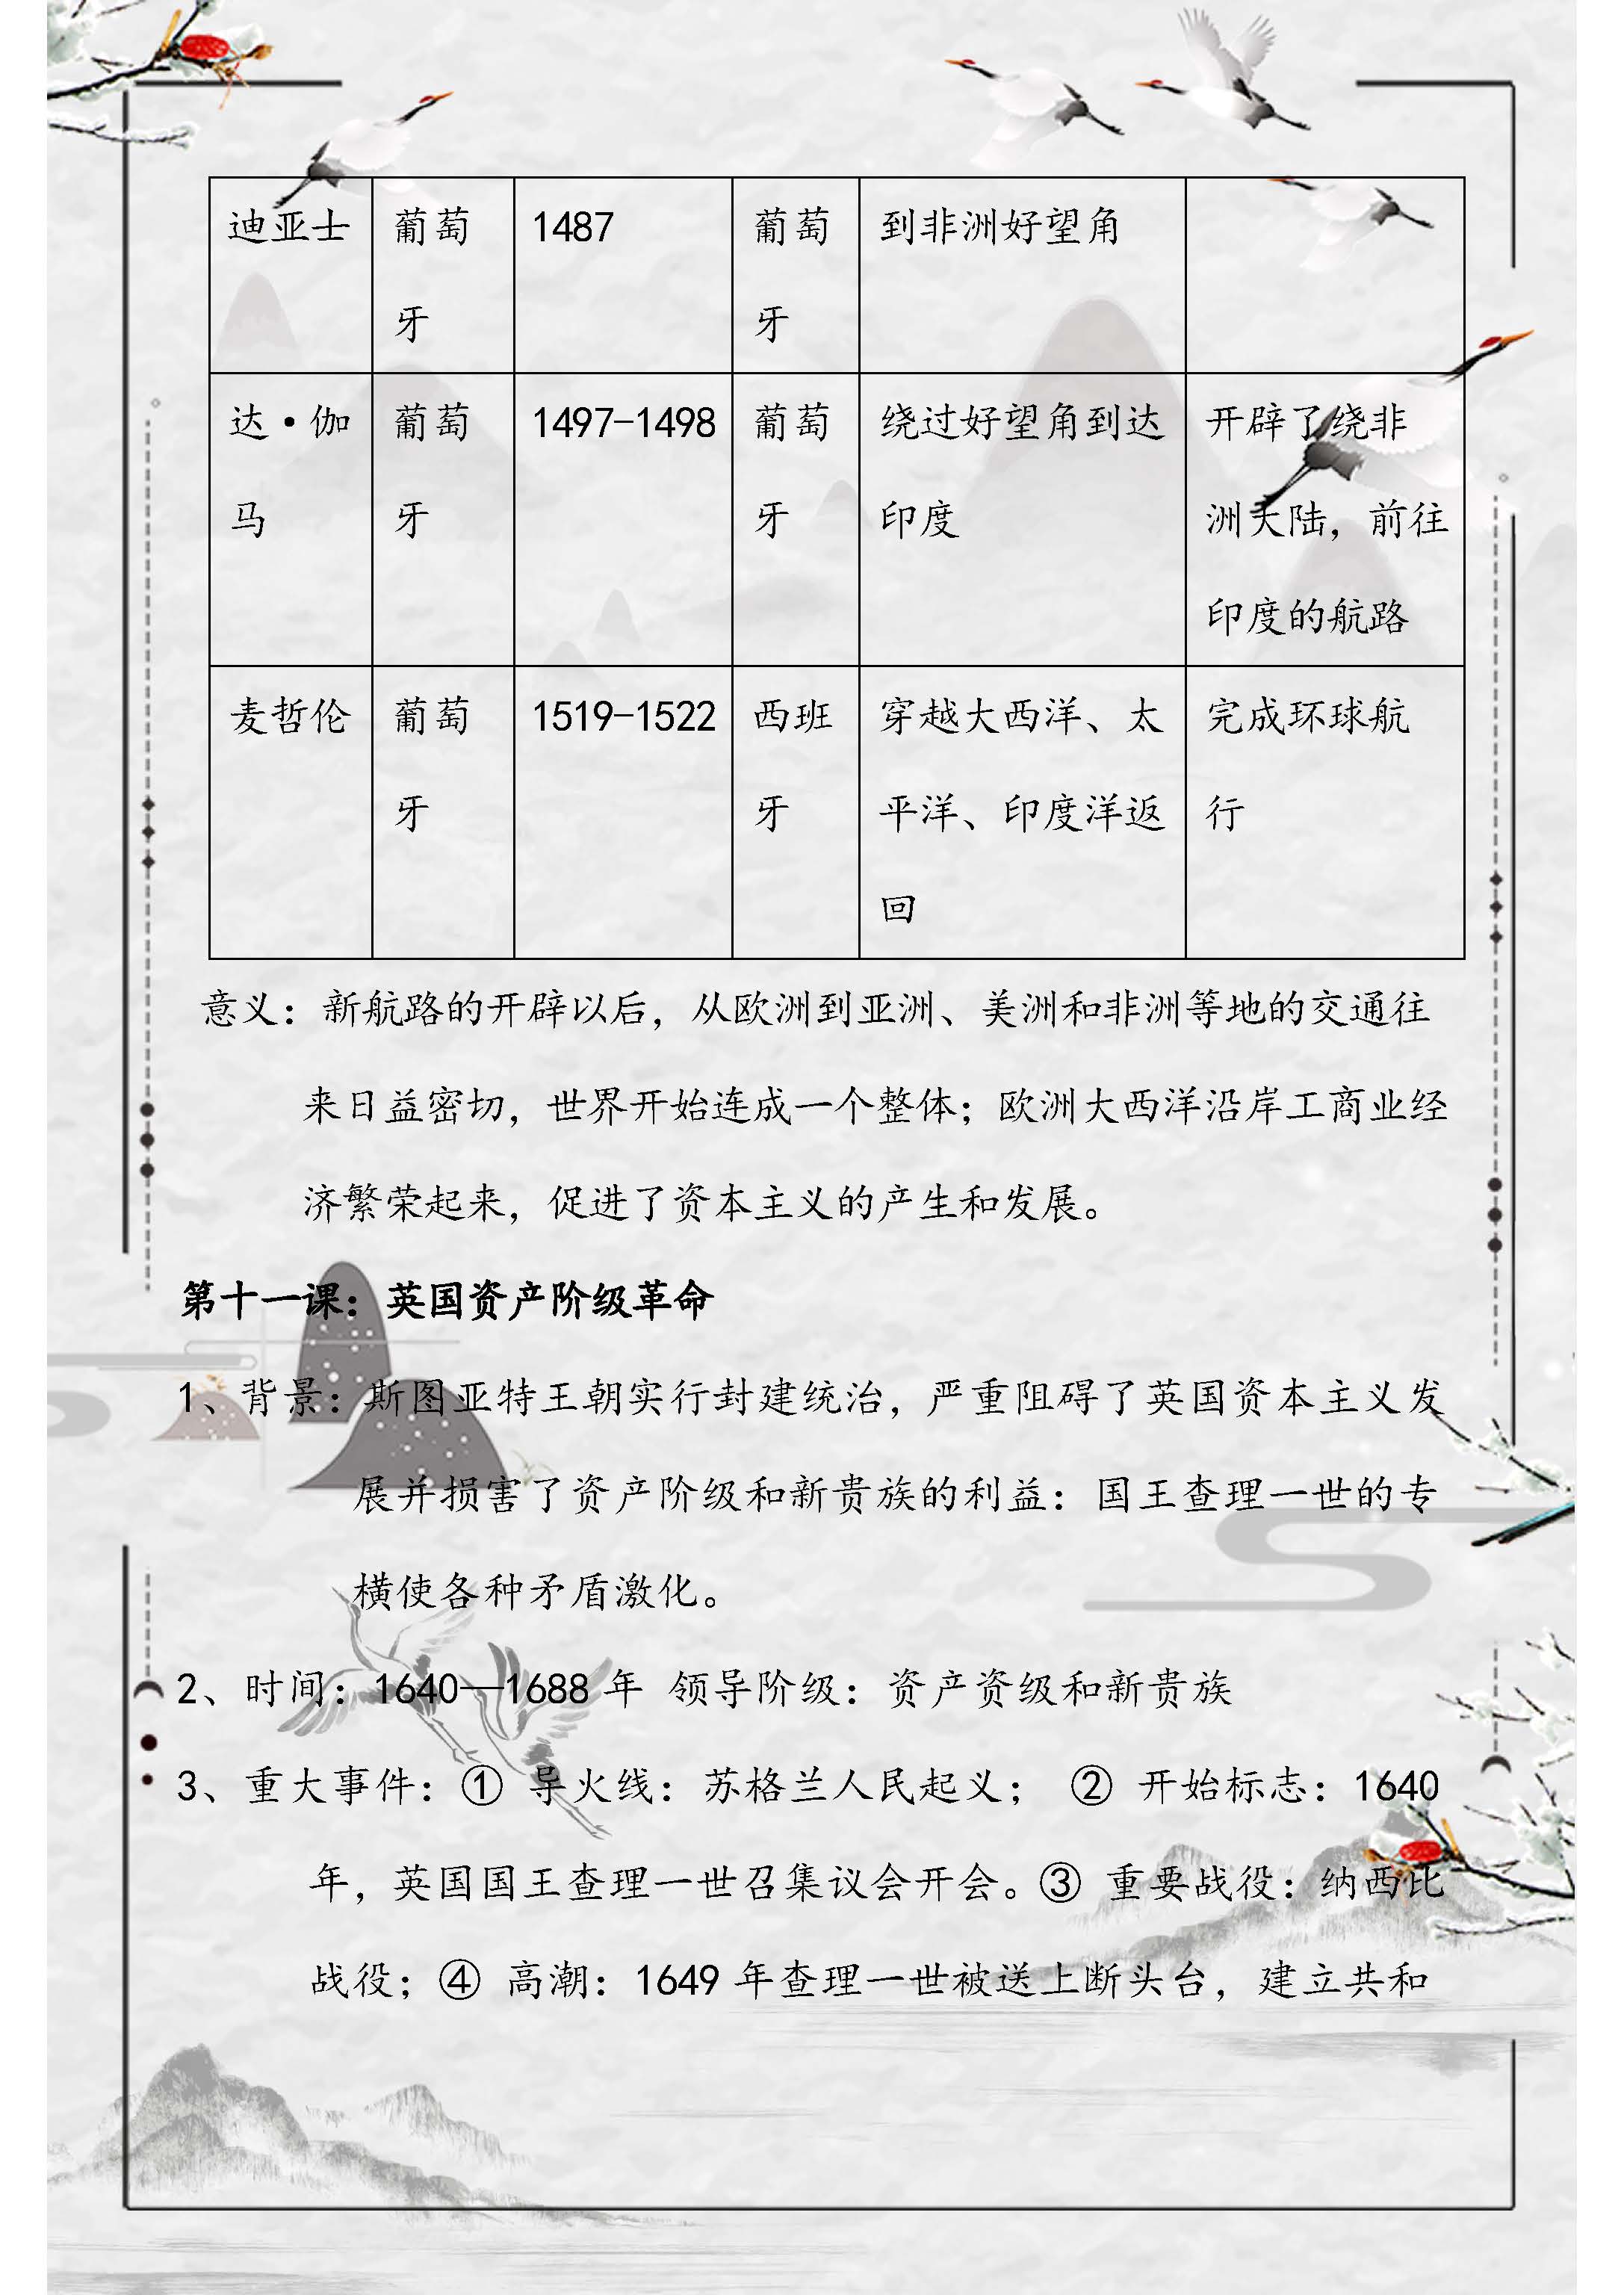 迪亚士 葡萄 1487 葡萄 到非洲好望角
牙 牙
达·伽 葡萄 1497-1498 葡萄 绕过好望角到达 开辟了绕非
马 牙 牙 印度 洲大陆，前往
印度的航路
麦哲伦 葡萄 1519-1522 西班 穿越大西洋、太 完成环球航
牙 牙 平洋、印度洋返 行
回
意义：新航路的开辟以后，从欧洲到亚洲、美洲和非洲等地的交通往
来日益密切，世界开始连成一个整体；欧洲大西洋沿岸工商业经
济繁荣起来，促进了资本主义的产生和发展。
第十一课：英国资产阶级革命
1、背景：斯图亚特王朝实行封建统治，严重阻碍了英国资本主义发
展并损害了资产阶级和新贵族的利益：国王查理一世的专
横使各种矛盾激化。
2、时间：1640—1688 年 领导阶级：资产资级和新贵族
3、重大事件：① 导火线：苏格兰人民起义； ② 开始标志：1640
年，英国国王查理一世召集议会开会。③ 重要战役：纳西比
战役；④ 高潮：1649 年查理一世被送上断头台，建立共和